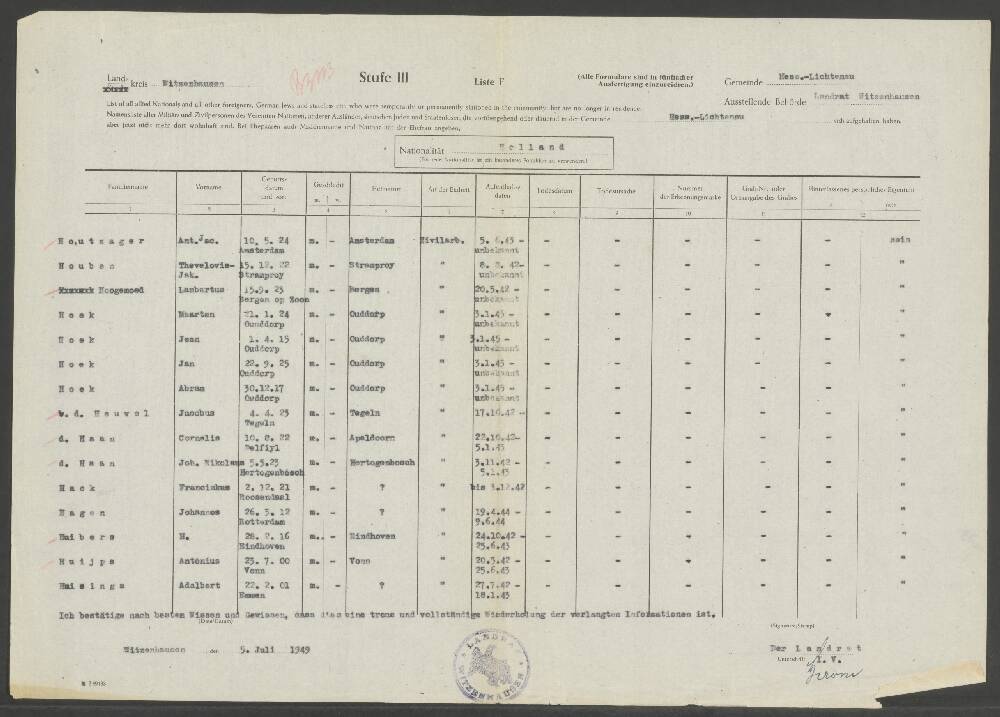 Land-
kreis Witzenhausen
Stufe III
Liste F
(Alle Formulare sind in fünffacher
Ausfertigung einzureichen.)
Gemeinde Hess.-Lichtenau
Ausstellende Behörde Landrat Witzenhausen
List of all allied Nationals and all other foreigners, German Jews and stateless etc. who were temporarily or permanently stationed in the community, but are no longer in residence.
Namensliste aller Militär- und Zivilpersonen der Vereinten Nationen, anderer Ausländer, deutschen Juden und Staatenloser, die vorübergehend oder dauernd in der Gemeinde Hess.-Lichtenau sich aufgehalten haben,
aber jetzt nicht mehr dort wohnhaft sind. Bei Ehepaaren auch Mädchenname und Nationalität der Ehefrau angeben.
Nationalität Holland
Familienname Vorname Geburts-datum und -ort Geschlecht m. w. Heimatort Art der Einheit Aufenthalts-daten Todesdatum Todesursache Nummer der Erkennungsmarke Grab-Nr. oder Ortsangabe des Grabes Hinterlassenes persönliches Eigentum
1 2 3 4 5 6 7 8 9 10 11 12
Houtzager Ant.Jac. 10. 5. 24 m. - Amsterdam Zivilarb. 5. 6.43 - - - - - nein
Amsterdam unbekannt
Houben Thevelovis- 15. 12. 22 m. - Stramproy " 8. 2. 42- - - - - - "
Jak. Stramproy unbekannt
Hoogemoed Lambertus 15.9. 23 m. - Bergen " 20.5.42 - - - - - - "
Bergen op Zoon unbekannt
Hoek Maarten 21. 1. 24 m. - Ouddorp " 3.1.45 - - - - - "
Ouddorp unbekannt
Hoek Jean 1. 4. 15 m. - Ouddorp " 3.1.45 - - - - - - "
Ouddorp unbekannt
Hoek Jan 22. 9. 25 m. - Ouddorp " 3.1.45 - - - - - - "
Ouddorp unbekannt
Hoek Abram 30.12.17 m. - Ouddorp " 3.1.45 - - - - - - "
Ouddorp unbekannt
v.d. Heuvel Jacobus 4. 4. 23 m. - Tegeln " 17.10.42 - - - - - - "
Tegeln
d. Haan Cornelis 10. 8. 22 m. - Apeldoorn " 22.10.42- - - - - - "
Delfiyl 5.1.43
d. Haan Joh. Nikolaus 5.5.23 m. - Hertogenbosch " 3.11.42 - - - - - - "
Hertogenbosch 5.1.43
Hack Franciskus 2. 12. 21 m. - ? " bis 3.12.42 - - - - - "
Roosendaal
Hagen Johannes 26. 5. 12 m. - ? " 19.4.44 - - - - - - "
Rotterdam 9.6.44
Huibers H. 28. 2. 16 m. - Eindhoven " 24.10.42 - - - - - - "
Eindhoven 25.6.43
Huijps Antonius 23. 7. 00 m. - Venn " 20.3.42 - - - - - - "
Venn 25.6.43
Huisinga Adalbert 22. 2. 01 m. - ? " 27.7.42 - - - - - - "
Emmen 18.1.43
Ich bestätige nach besten Wissen und Gewissen, dass dies eine treue und vollständige Wiederholung der verlangten Informationen ist.
(Date/Datum)
(Signature/Stamp)
Witzenhausen den 5. Juli 1949
Der Landrat
Unterschrift: I. V.
LANDRAT
WITZENHAUSEN